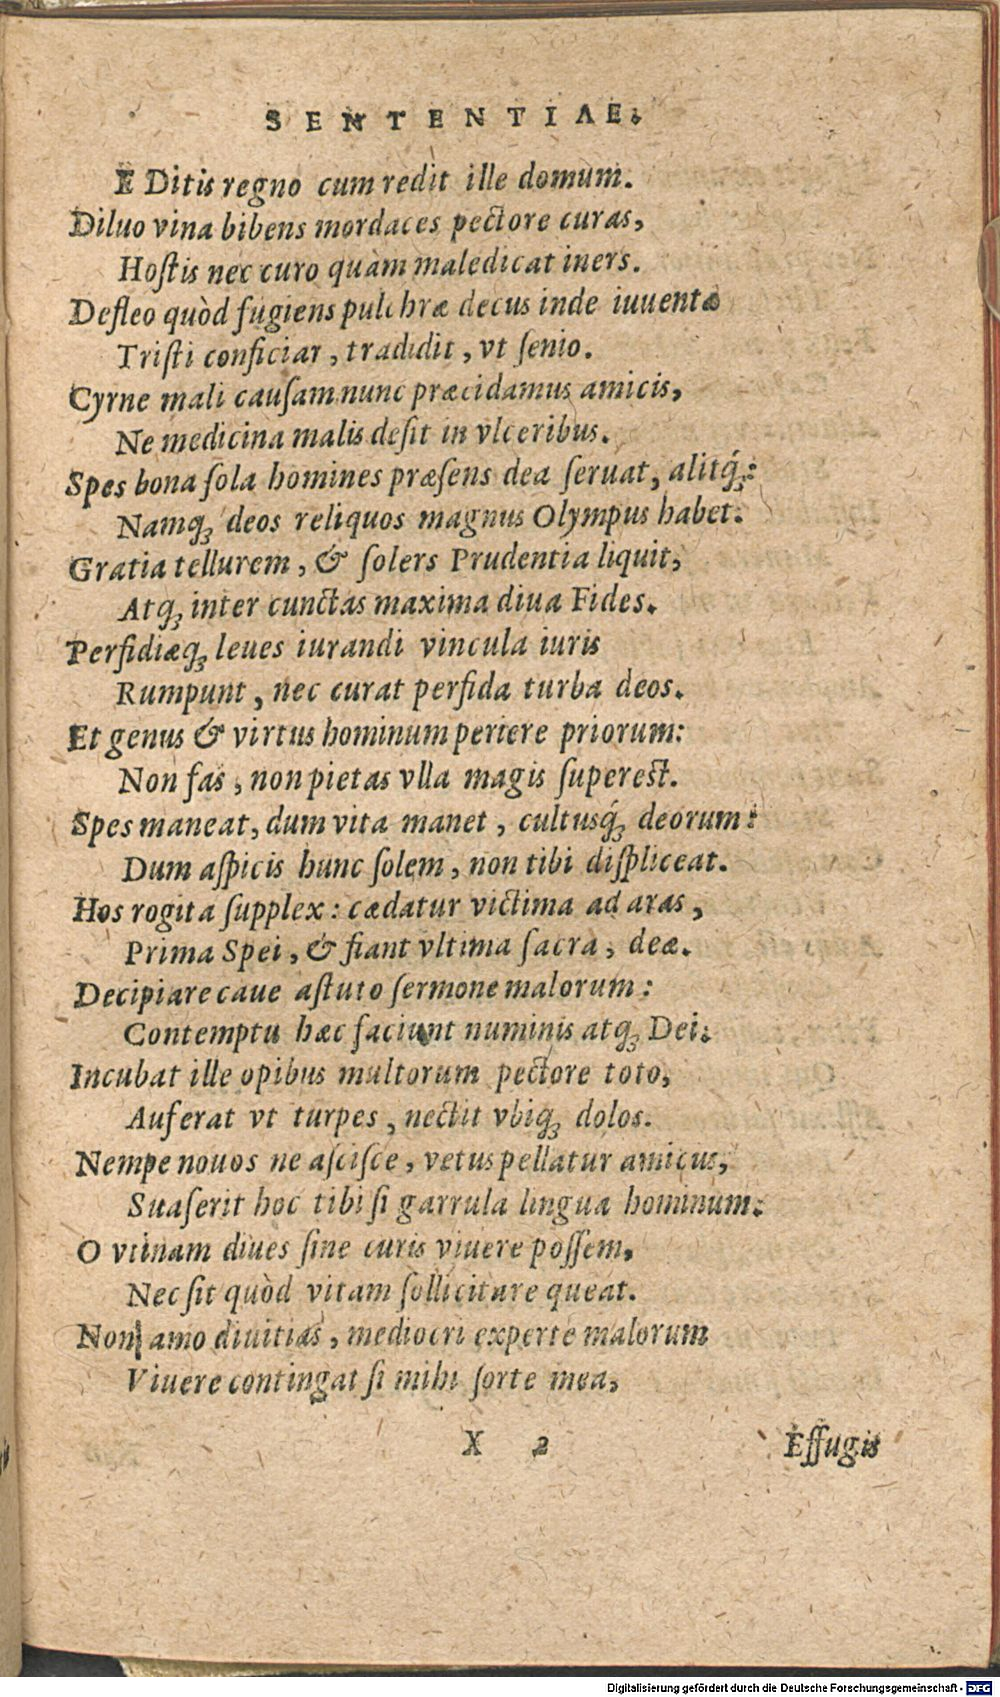 SENTENTIAE.
E Ditis regno cum redit ille domum.
Diluo vina bibens mordaces pectore curas,
Hoſtis nec curo quàm maledicat iners.
Defleo quòd fugiens pulchræ decus inde iuuentæ
Triſti conficiar, tradidit, vt ſenio.
Cyrne mali cauſam nunc præcidamus amicis,
Ne medicina malis deſit in vlceribus.
Spes bona ſola homines præſens dea ſeruat, alitq́ꝫ:
Namqꝫ deos reliquos magnus Olympus habet.
Gratia tellurem, & ſolers Prudentia liquit,
Atqꝫ inter cunctas maxima diua Fides.
Perfidiæqꝫ leues iurandi vincula iuris
Rumpunt, nec curat perfida turba deos.
Et genus & virtus hominum periere priorum:
Non fas, non pietas vlla magis ſupereſt.
Spes maneat, dum vita manet, cultusq́ꝫ deorum:
Dum aſpicis hunc ſolem, non tibi diſpliceat.
Hos rogita ſupplex: cædatur victima ad aras,
Prima Spei, & fiant vltima ſacra, deæ.
Decipiare caue aſtuto ſermone malorum:
Contemptu hæc faciunt numinis atqꝫ Dei.
Incubat ille opibus multorum pectore toto,
Auferat vt turpes, nectit vbiqꝫ dolos.
Nempe nouos ne aſciſce, vetus pellatur amicus,
Suaſerit hoc tibi ſi garrula lingua hominum.
O vtinam diues ſine curis viuere poſſem,
Nec ſit quòd vitam ſollicitare queat.
Non amo diuitias, mediocri experte malorum
Viuere contingat ſi mihi ſorte mea,
X 2 Effugis
Digitalisierung gefördert durch die Deutsche Forschungsgemeinschaft - DFG